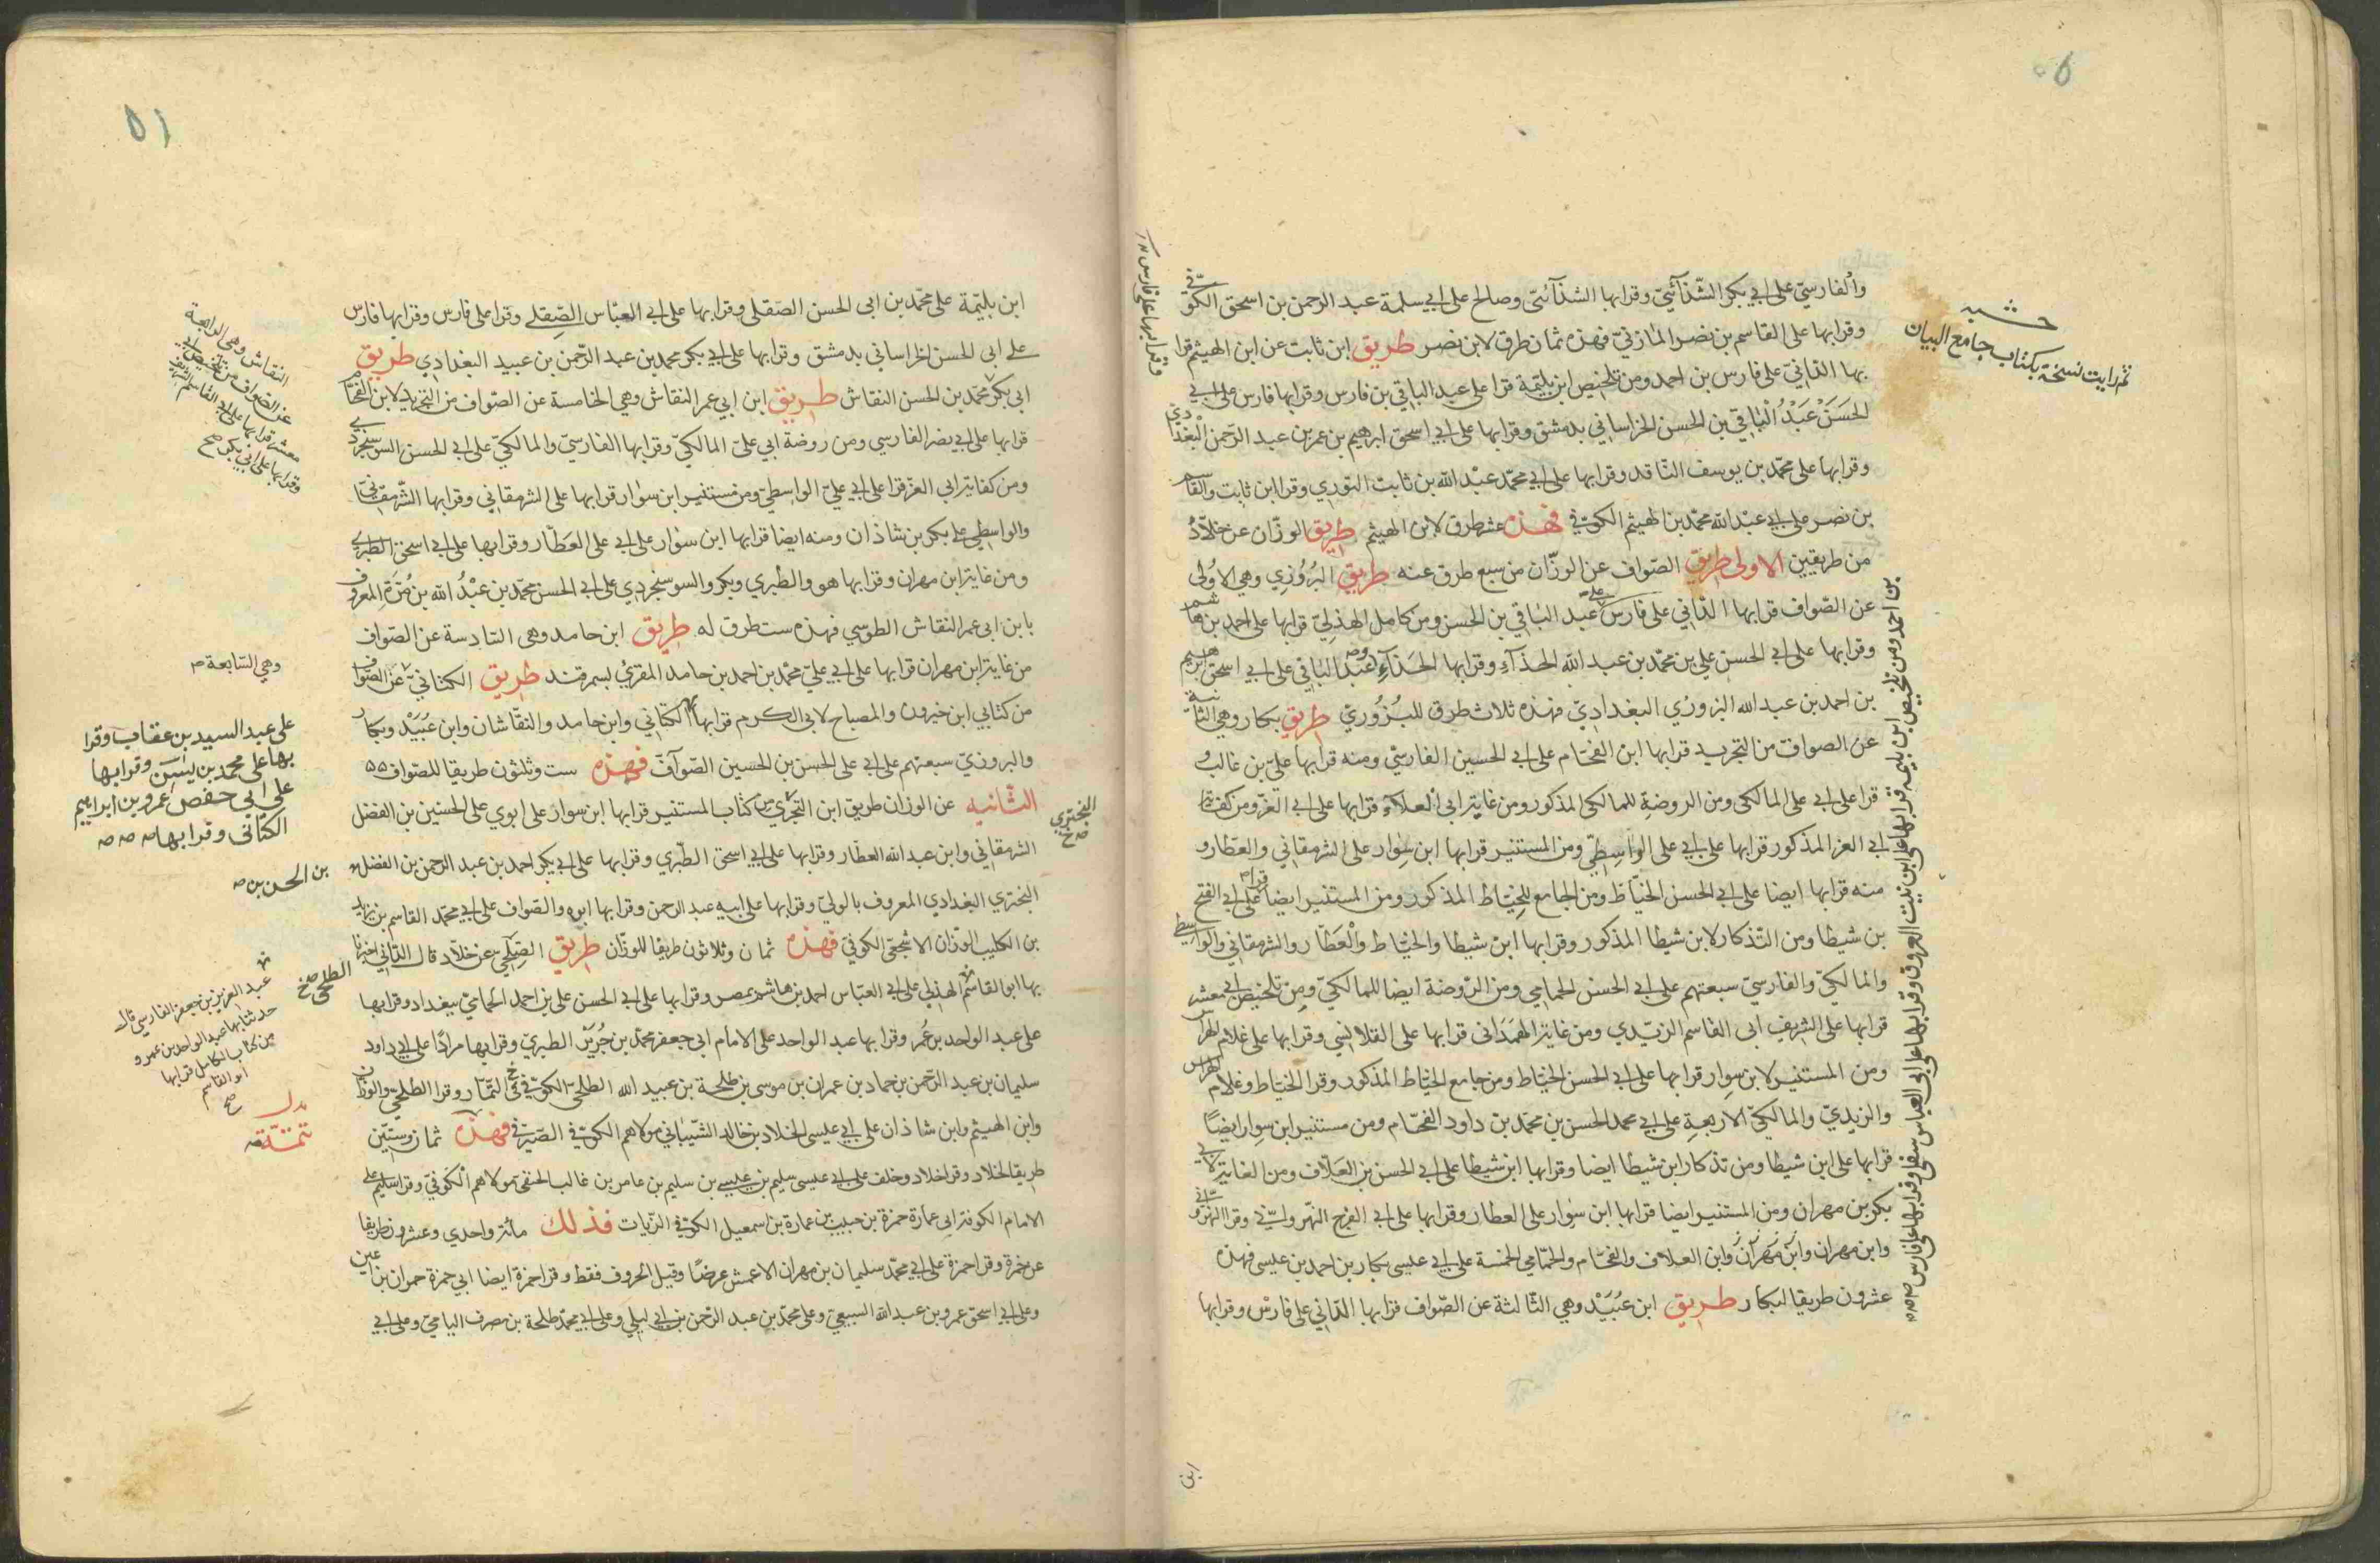 والفارسي على ابي بكر الشذائي وقرا بها الشذائي وصالح على ابي سلمة عبد الرحمن بن اسحق الكوفي
وقرا بها على القاسم بن نصر المازني فهذه ثمان طرق لابن نصر طريق ابن ثابت عن ابن الهيثم قرا
بها الداني على فارس بن احمد ومن تلخيص ابن بليمة قرا على عبد الباقي بن فارس وقرا بها فارس على ابي
الحسن عبد الباقي بن الحسن الخراساني بدمشق وقرا بها على ابي اسحق ابرهيم بن عمر بن عبد الرحمن البغدادي
وقرا بها على محمد بن يوسف الناقد وقرا بها على ابي محمد عبد الله بن ثابت التوزي وقرا ابن ثابت والقاسم
بن نصر على ابي عبد الله محمد بن الهيثم الكوفي فهذه عشر طرق لابن الهيثم طريق الوزان عن خلاد
من طريقين الاولى طريق الصواف عن الوزان من سبع طرق عنه طريق البزوري وهي الاولى
عن الصواف قرا بها الداني على فارس على عبد الباقي بن الحسن ومن كامل الهذلي قرا بها على احمد بن هاشم
وقرا بها على ابي الحسن علي بن محمد بن عبد الله الحذاء وقرا بها الحذاء وعبد الباقي على ابي اسحق ابرهيم
بن احمد بن عبد الله البزوري البغدادي فهذه ثلاث طرق للبزوري طريق بكار وهي الثانية
عن الصواف من التجريد قرا بها ابن الفحام على ابي الحسين الفارسي ومنه قرا بها على بن غالب
قرا على ابي على المالكي ومن الروضة للمالكي المذكور ومن غاية ابي العلاء قرا بها على ابي العز ومن كفاية
ابي العز المذكور قرا بها على ابي على الواسطي ومن المستنير قرا بها ابن سوار على الشرمقاني والعطار و
منه قرا بها ايضا على ابي الحسن الخياط ومن الجامع للخياط المذكور ومن المستنير ايضا قرا على ابي الفتح
بن شيطا ومن التذكار لابن شيطا المذكور وقرا بها ابن شيطا والخياط والعطار والشرمقاني والواسطي
والمالكي والفارسي سبعتهم على ابي الحسن الحمامي ومن الروضة ايضا للمالكي ومن تلخيص ابي معشر
قرا بها على الشريف ابي القاسم الزيدي ومن غاية الهمداني قرا بها على القلانسي وقرا بها على غلام الهراس
ومن المستنير لابن سوار قرا بها على ابي الحسن الخياط ومن جامع الخياط المذكور وقرا الخياط وغلام الهراس
والزيدي والمالكي الاربعة على ابي محمد الحسن بن محمد بن داود الفحام ومن مستنير ابن سوار ايضا
قرا بها على ابن شيطا ومن تذكار ابن شيطا ايضا وقرا بها ابن شيطا على ابي الحسن بن العلاف ومن الغاية لابي
بكر بن مهران ومن المستنير ايضا قرا بها ابن سوار على العطار وقرا بها على ابي الفرج النهرواني وقرا النهرواني
وابن مهران وابن مهران وابن العلاف والفحام والحمامي الخمسة على ابي عيسى بكار بن احمد بن عيسى فهذه
عشرون طريقا لبكار طريق ابن عبيد وهي الثالثة عن الصواف قرا بها الداني على فارس وقرا بها
حشيه
ثم رايت نسخة بكتاب جامع البيان
وقرا بها على فارس
بن احمد ومن تلخيص ابن بليمه قرا بها على ابن نبت العروق وقرا بها على ابي العباس سنفي وقرا بها على فارس
ابن
٥١
ابن بليمة على محمد بن ابي الحسن الصقلي وقرا بها على ابي العباس الصقلي وقرا على فارس وقرا بها فارس
على ابي الحسن الخراساني بدمشق وقرا بها على ابي بكر محمد بن عبد الرحمن بن عبيد البغدادي طريق
ابي بكر محمد بن الحسن النقاش طريق ابن ابي عمر النقاش وهي الخامسة عن الصواف من التجريد لابن الفحام
قرا بها على ابي نصر الفارسي ومن روضة ابي على المالكي وقرا بها الفارسي والمالكي على ابي الحسن السوسنجردي
ومن كفاية ابي العز قرا على ابي على الواسطي ومن مستنير ابن سوار قرا بها على الشرمقاني وقرا بها الشرمقاني
والواسطي على بكر بن شاذان ومنه ايضا قرا بها ابن سوار على ابي على العطار وقرا بها على ابي اسحق الطبري
ومن غاية ابن مهران وقرا بها هو والطبري وبكر والسوسنجردي على ابي الحسن محمد بن عبد الله بن مرة المعروف
بابن ابي عمر النقاش الطوسي فهذه ست طرق له طريق ابن حامد وهي السادسة عن الصواف
من غاية ابن مهران قرا بها على ابي علي محمد بن احمد بن حامد المقرئ بسمرقند طريق الكتاني عن الصواف
من كتابي ابن خيرون والمصباح لابي الكرم قرا بها الكتاني وابن حامد والنقاشان وابن عبيد وبكار
والبزوري سبعتهم على ابي على الحسن بن الحسين الصواف فهذه ست وثلثون طريقا للصواف
الثانيه عن الوزان طريق ابن البختري من كتاب المستنير قرا بها ابن سوار على ابوي على الحسنين بن الفضل
الشرمقاني وابن عبد الله العطار وقرا بها على ابي اسحق الطبري وقرا بها على ابي بكر احمد بن عبد الرحمن بن الفضل
البختري البغدادي المعروف بالولي وقرا بها على ابيه عبد الرحمن وقرا بها ابوه والصواف على ابي محمد القاسم بن يزيد
بن الكليب الوزان الاشجعي الكوفي فهذه ثمان وثلاثون طريقا للوزان طريق الطلحي عن خلاد قال الداني اخبرنا
بها ابو القاسم الهذلي على ابي العباس احمد بن هاشم بمصر وقرا بها على ابي الحسن علي بن احمد الحمامي ببغداد وقرا بها
على عبد الواحد بن عمر وقرا بها عبد الواحد على الامام ابي جعفر محمد بن جرير الطبري وقرا بها مرارا على ابي داود
سليمان بن عبد الرحمن بن حماد بن عمران بن موسى بن طلحة بن عبيد الله الطلحي الكوفي التمار وقرا الطلحي والوزان
وابن الهيثم وابن شاذان على ابي عيسى الخلاد بن خالد الشيباني مولاهم الكوفي الصيرفي فهذه ثمان وستين
طريقا لخلاد وقرا خلاد وخلف على ابي عيسى سليم بن عيسى بن سليم بن عامر بن غالب الحنفي مولاهم الكوفي وقرا سليم على
الامام الكوفة ابي عمارة حمزة بن حبيب بن عمارة بن اسمعيل الكوفي الزيات فذلك مائة واحدي وعشرون طريقا
عن حمزة وقرا حمزة على ابي محمد سليمان بن مهران الاعمش عرضا وقيل الحروف فقط وقرا حمزة ايضا ابي حمزة حمران بن اعين
وعلى ابي اسحق عمرو بن عبد الله السبيعي وعلى محمد بن عبد الرحمن بن ابي ليلى وعلى ابي محمد طلحة بن مصرف اليامي وعلى ابي
النقاش وهي الرابعة
عن الصواف من تلخيص ابي
معشر قرا بها على ابي القاسم الشريف
وقرا بها على ابي بكر صح
وهي السابعة
على عبد السيد بن عتاب وقرا
بها على محمد بن يسين وقرا بها
على ابي حفص عمرو بن ابراهيم
الكتاني وقرا بها
البختري
بن الحسن بن
الطلحي
عبد العزيز بن جعفر الفارسي قال
حدثنا بها عبد الواحد بن عمر و
من كتاب الكامل قرا بها
ابو القاسم
صح